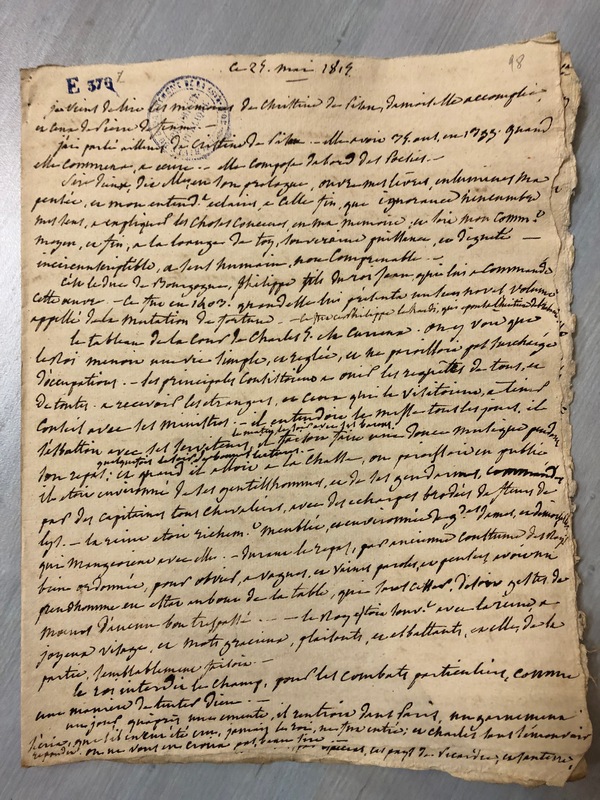 ce 25. mai 1819
98
E 378
je viens de lire les mémoires de Christine de Pisan, damoiselle accomplie,
et ceux de Pierre de
j'ai parlé ailleurs de Cristine de Pisan — elle avoit 35. ans, en 1399. quand
elle commença, a — elle composa dabord des Poësies. —
Sire Dieux, dis-je en son prologue, ouvre mes lèvres, enlumines ma
pensée, et mon entend.t eclaires, a celle fin, que ignorance n'encombre
mes sens, a expliquer les choses concues, en ma mémoire, et soit mon comm.t
moyen, et fin, a la louange de toy, souveraine puissance, et dignité —
incirconscriptible, a sens humain, non comprenable. —
C'est le duc de Bourgogne, Philippe fils du roi Jean, qui lui a commandé
cette œuvre. — Ce fut en 1403. quand elle lui présenta un sien novel volume
appellé de la Mutation de fortune — Philippe le hardi, qui
le tableau de la Cour de Charles V. est curieux. on y voit que
le Roi menoit une vie simple, et réglée, et ne paroissoit pas surchargé
d'occupations. — les principales consistoient a ouir les requêtes de tous, et
de toutes. a recevoir les etrangers, et ceux qui le visitoient, a tenir
conseil avec les ministres. — il entendoit la messe tous les jours, il
s'ebattoit avec ses serviteurs, il faisoit faire une douce musique pendant
quelquefois
son repas; et quand il alloit a la chasse, ou paroissoit en public
il etoit environné de ses gentilshommes, et de ses gendarmes, commandés
par des capitaines tous chevaliers, avec des echarpes brodées de fleurs de
lys. — la reine etoit richem.t meublée, et environnée de g.des dames, et damoiselles
qui mangeoient avec elle. — durant le repas, par ancienne coustume des Roys
bien ordonnée, pour obvier, a vagues, et vaines paroles, et pensées, avoit un
preudhomme en estant au bout de la table, qui sans cesser, disoit gestes de
moeurs d'aucun bon trespassé — — le Roy estoit souv.t avec la reine, a
joyeux visage, et mots gracieux, plaisants, et esbattants, et elle, de la
partie, semblablement faisoit —
le roi interdit le champ, pour les combats particuliers, comme
une manière de tenter dieu. —
un jour qu'après une emeute, il rentroit dans Paris, un garnement
s'écria, que s'il en eut été cru, jamais le roi, ne fut entré, et Charles sans s'emouvoir
répondit. on ne vous en croira pas, beau sire — en pays de Picardie, et